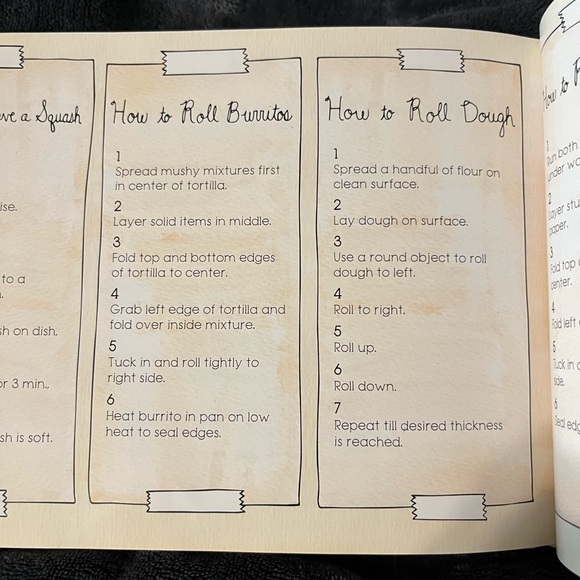 ve a Squash
ise.
to a
sh on dish.
or 3 min..
sh is soft.
How to Roll Burritos
1
Spread mushy mixtures first
in center of tortilla.
2
Layer solid items in middle.
3
Fold top and bottom edges
of tortilla to center.
4
Grab left edge of tortilla and
fold over inside mixture.
5
Tuck in and roll tightly to
right side.
6
Heat burrito in pan on low
heat to seal edges.
How to Roll Dough
1
Spread a handful of flour on
clean surface.
2
Lay dough on surface.
3
Use a round object to roll
dough to left.
4
Roll to right.
5
Roll up.
6
Roll down.
7
Repeat till desired thickness
is reached.
How to
1
Run both
under wa
2
Layer stu
paper.
3
Fold top
center.
4
Fold left
5
Tuck in
side.
6
Seal edg